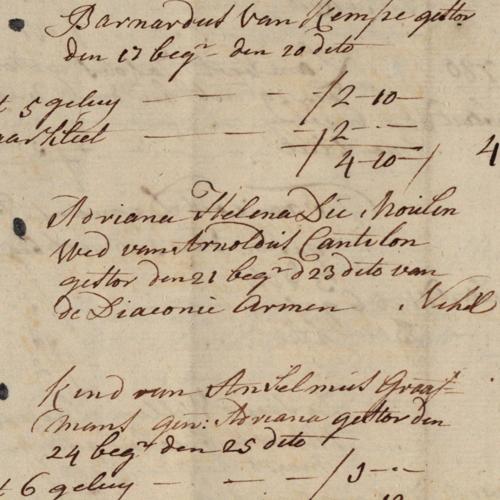 Barnardus van Kempe gestor
den 17 begr den 20 dito
t 5 geluy — — — / 2-10-
aarkleet — — — - 2 - . -
/ 4-10- / 4
Adriana Helena Die Moulen
Wed van Arnoldus Cantelon
gestor den 21 begr d 23 dito van
de Diaconie Armen . Nihil
Kind van Anselmus Graaf-
mans gen: Adriana gestor den
24 begr den 25 dito
t 6 geluy — — — / 3 - . -